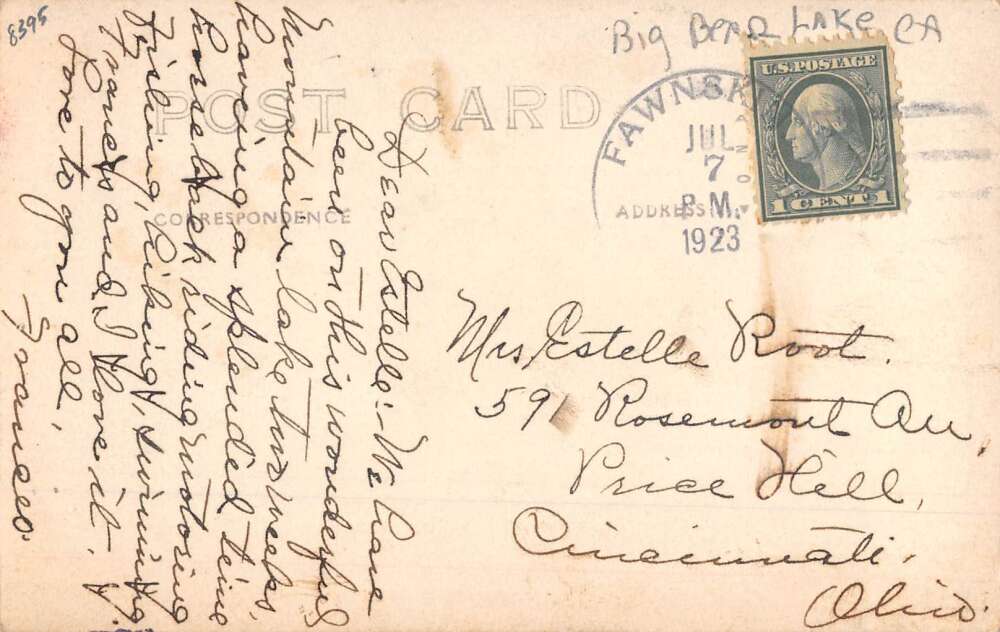 8395
Big Bear Lake CA
POST CARD
FAWNSKI
JUL
7
P.M.
1923
U.S. POSTAGE
1 CENT 1
CORRESPONDENCE
ADDRESS
Dear Estelle:- We have
been on this wonderful
Mountain lake two weeks,
haveing a splended time
horse back riding motoring
fishing, hiking, swimming.
Frances and I love it.
Love to you all,
Frances.
Mrs Estelle Root.
591 Rosemont Av,
Price Hill,
Cincinnati.
Ohio.